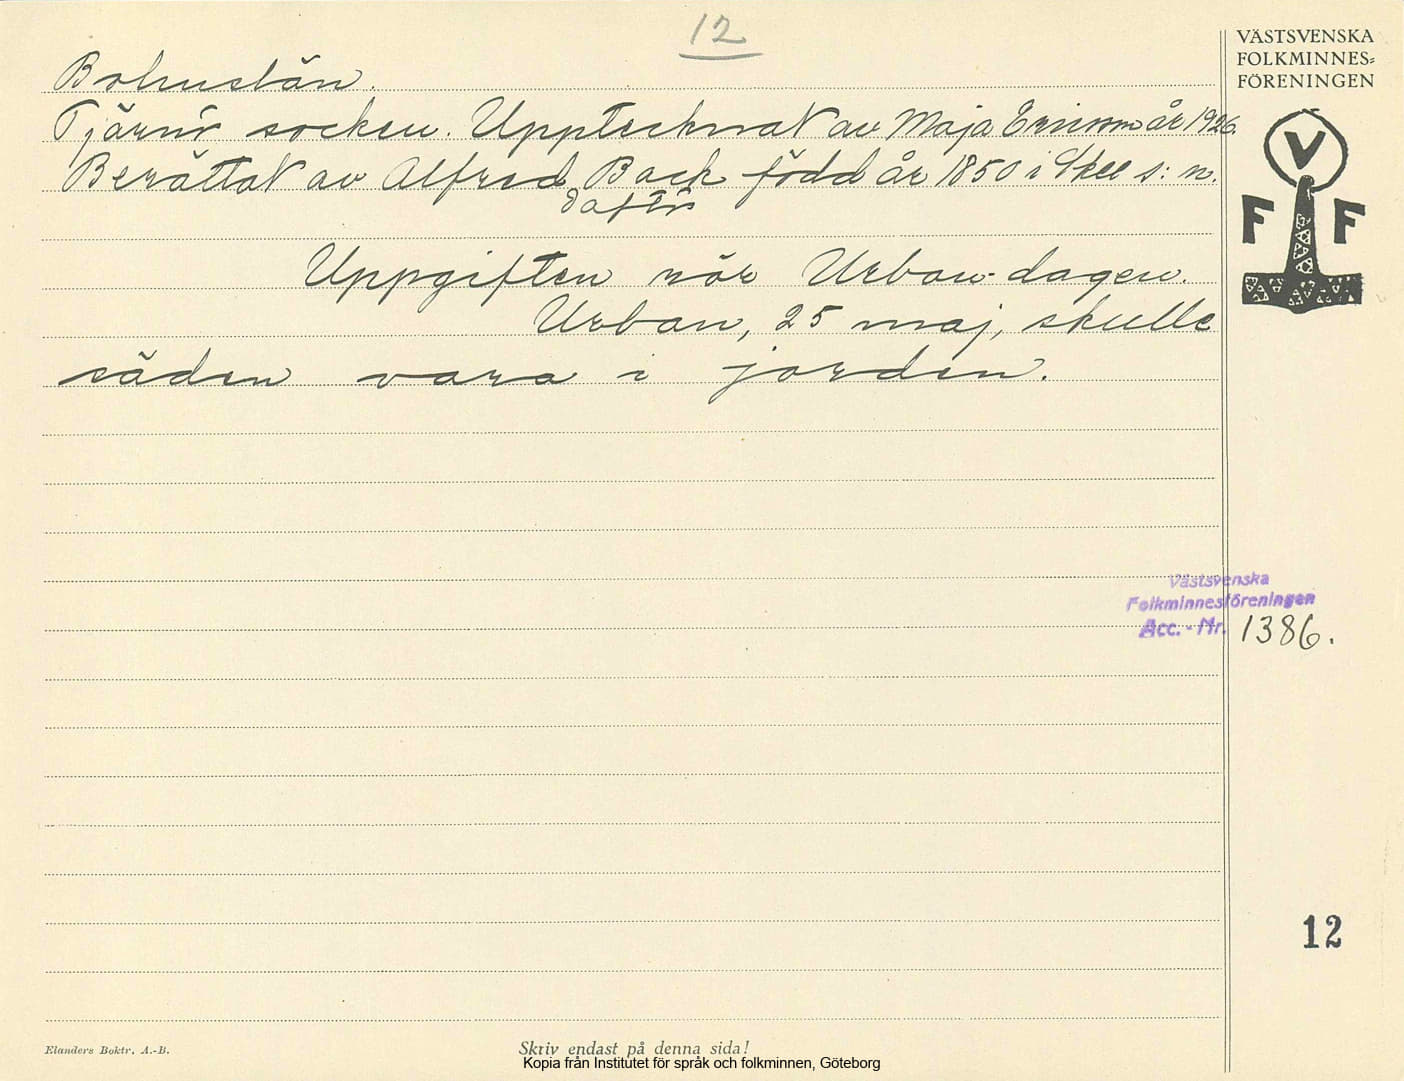 12
VÄSTSVENSKA
FOLKMINNES=
FÖRENINGEN
V
F F
Bohuslän.
Tjärnö socken. Upptecknat av Maja Ericson år 1926.
Berättat av Alfred Back född år 1850 i Skee s:n.
Uppgiften rör Urban-dagen.
Urban, 25 maj, skulle
säden vara i jorden.
Västsvenska
Folkminnesföreningen
Acc. - Nr. 1386.
12
Elanders Boktr. A.-B.
Skriv endast på denna sida!
Kopia från Institutet för språk och folkminnen, Göteborg